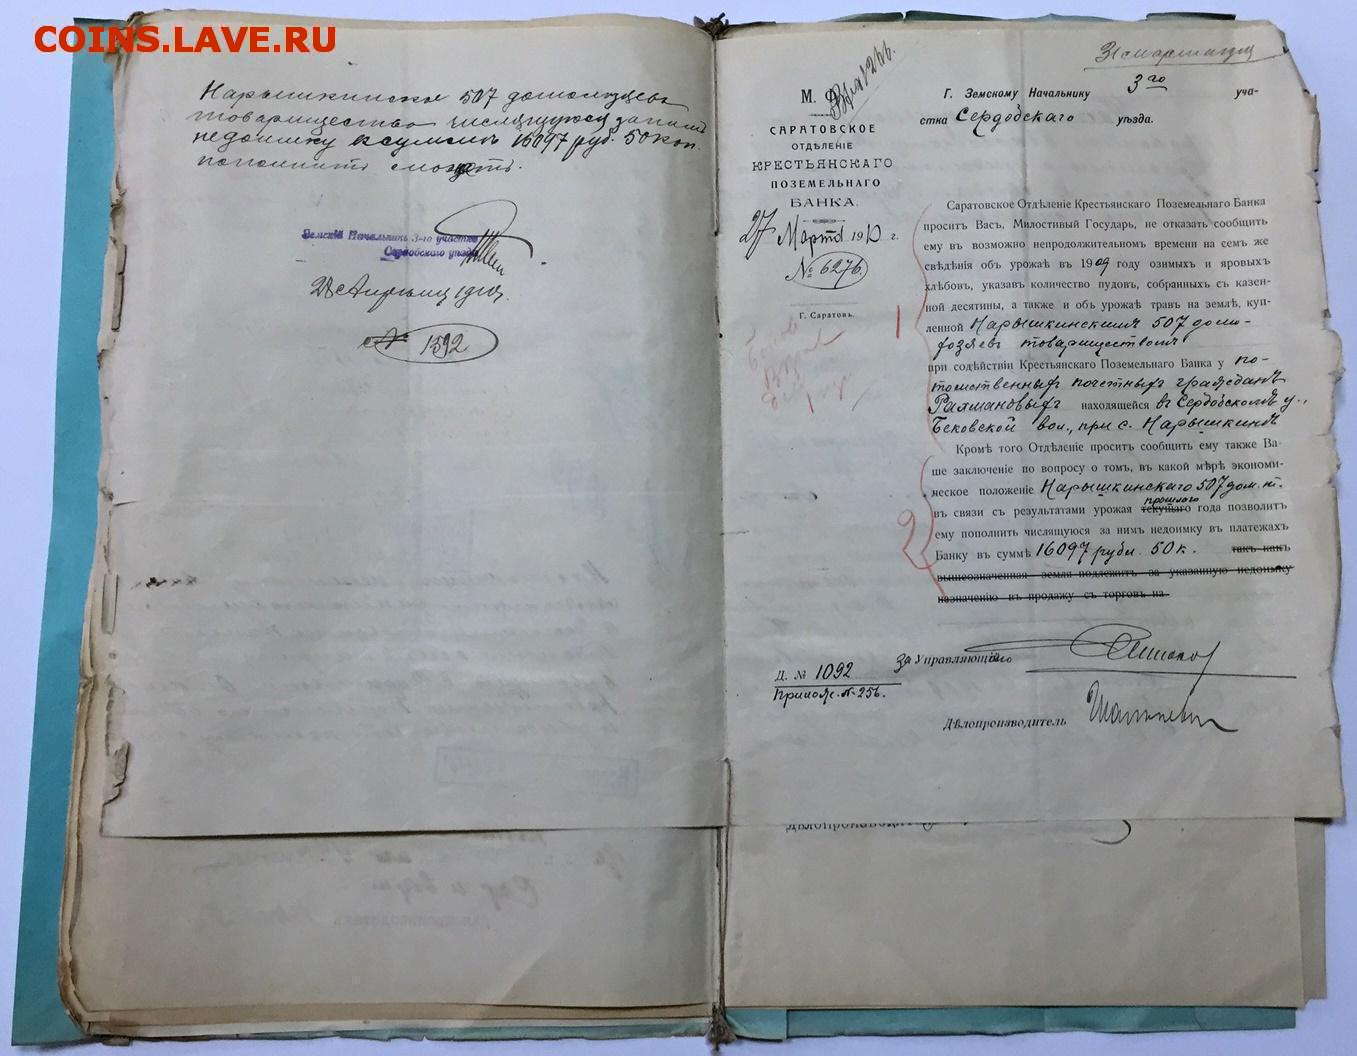 COINS.LAVE.RU
Нарышкинское 507 домохозяевъ
товарищество числящуюся за нимъ
недоимку въ суммѣ 16097 руб. 50 коп.
пополнить можетъ.
Земскій Начальникъ 3-го участка
Сердобскаго уѣзда
28 Апрѣля 1910 г.
№ 1592
М. Ф.
САРАТОВСКОЕ
ОТДѢЛЕНІЕ
КРЕСТЬЯНСКАГО
ПОЗЕМЕЛЬНАГО
БАНКА.
27 Марта 1910 г.
№ 6276.
Г. Саратовъ.
31 марта
Г. Земскому Начальнику 3го уча-
стка Сердобскаго уѣзда.
Саратовское Отдѣленіе Крестьянскаго Поземельнаго Банка
проситъ Васъ, Милостивый Государь, не отказать сообщить
ему въ возможно непродолжительномъ времени на семъ же
свѣдѣнія объ урожаѣ въ 1909 году озимыхъ и яровыхъ
хлѣбовъ, указавъ количество пудовъ, собранныхъ съ казен-
ной десятины, а также и объ урожаѣ травъ на землѣ, куп-
ленной Нарышкинскимъ 507 домо-
хозяевъ товариществомъ
при содѣйствіи Крестьянскаго Поземельнаго Банка у по-
томственныхъ почетныхъ гражданъ
Рахмановыхъ находящейся въ Сердобскомъ у.,
Бековской вол., при с. Нарышкинѣ
1
Кромѣ того Отдѣленіе проситъ сообщить ему также Ва-
ше заключеніе по вопросу о томъ, въ какой мѣрѣ экономи-
ческое положеніе Нарышкинскаго 507 дом. т.
прошлаго
въ связи съ результатами урожая текущаго года позволитъ
ему пополнить числящуюся за нимъ недоимку въ платежахъ
Банку въ суммѣ 16097 рубл. 50 к. такъ какъ
вышеозначенная земля подлежитъ за указанную недоимку
назначенію въ продажу съ торговъ на
2
За Управляющаго
Д. № 1092
Прилож. № 256.
Дѣлопроизводитель
Дѣлопроизводитель